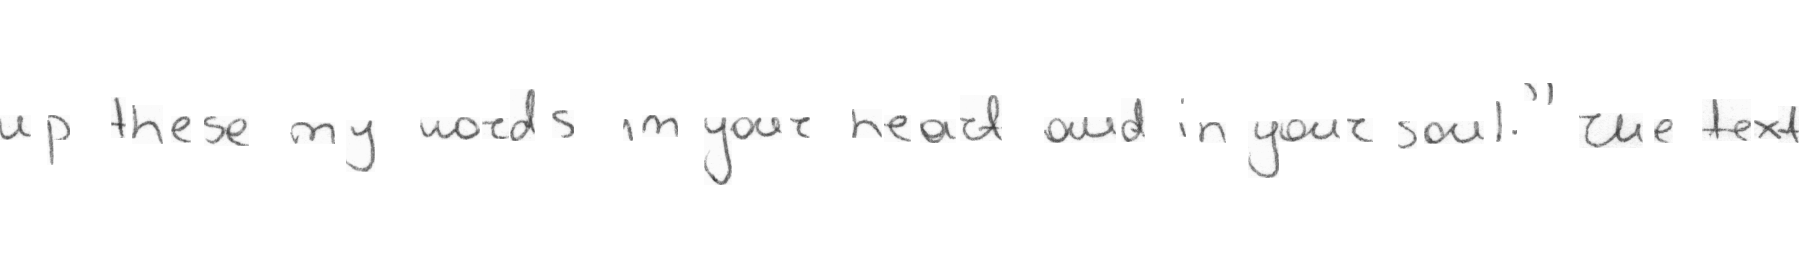 up these my words in your heart and in your soul." The text